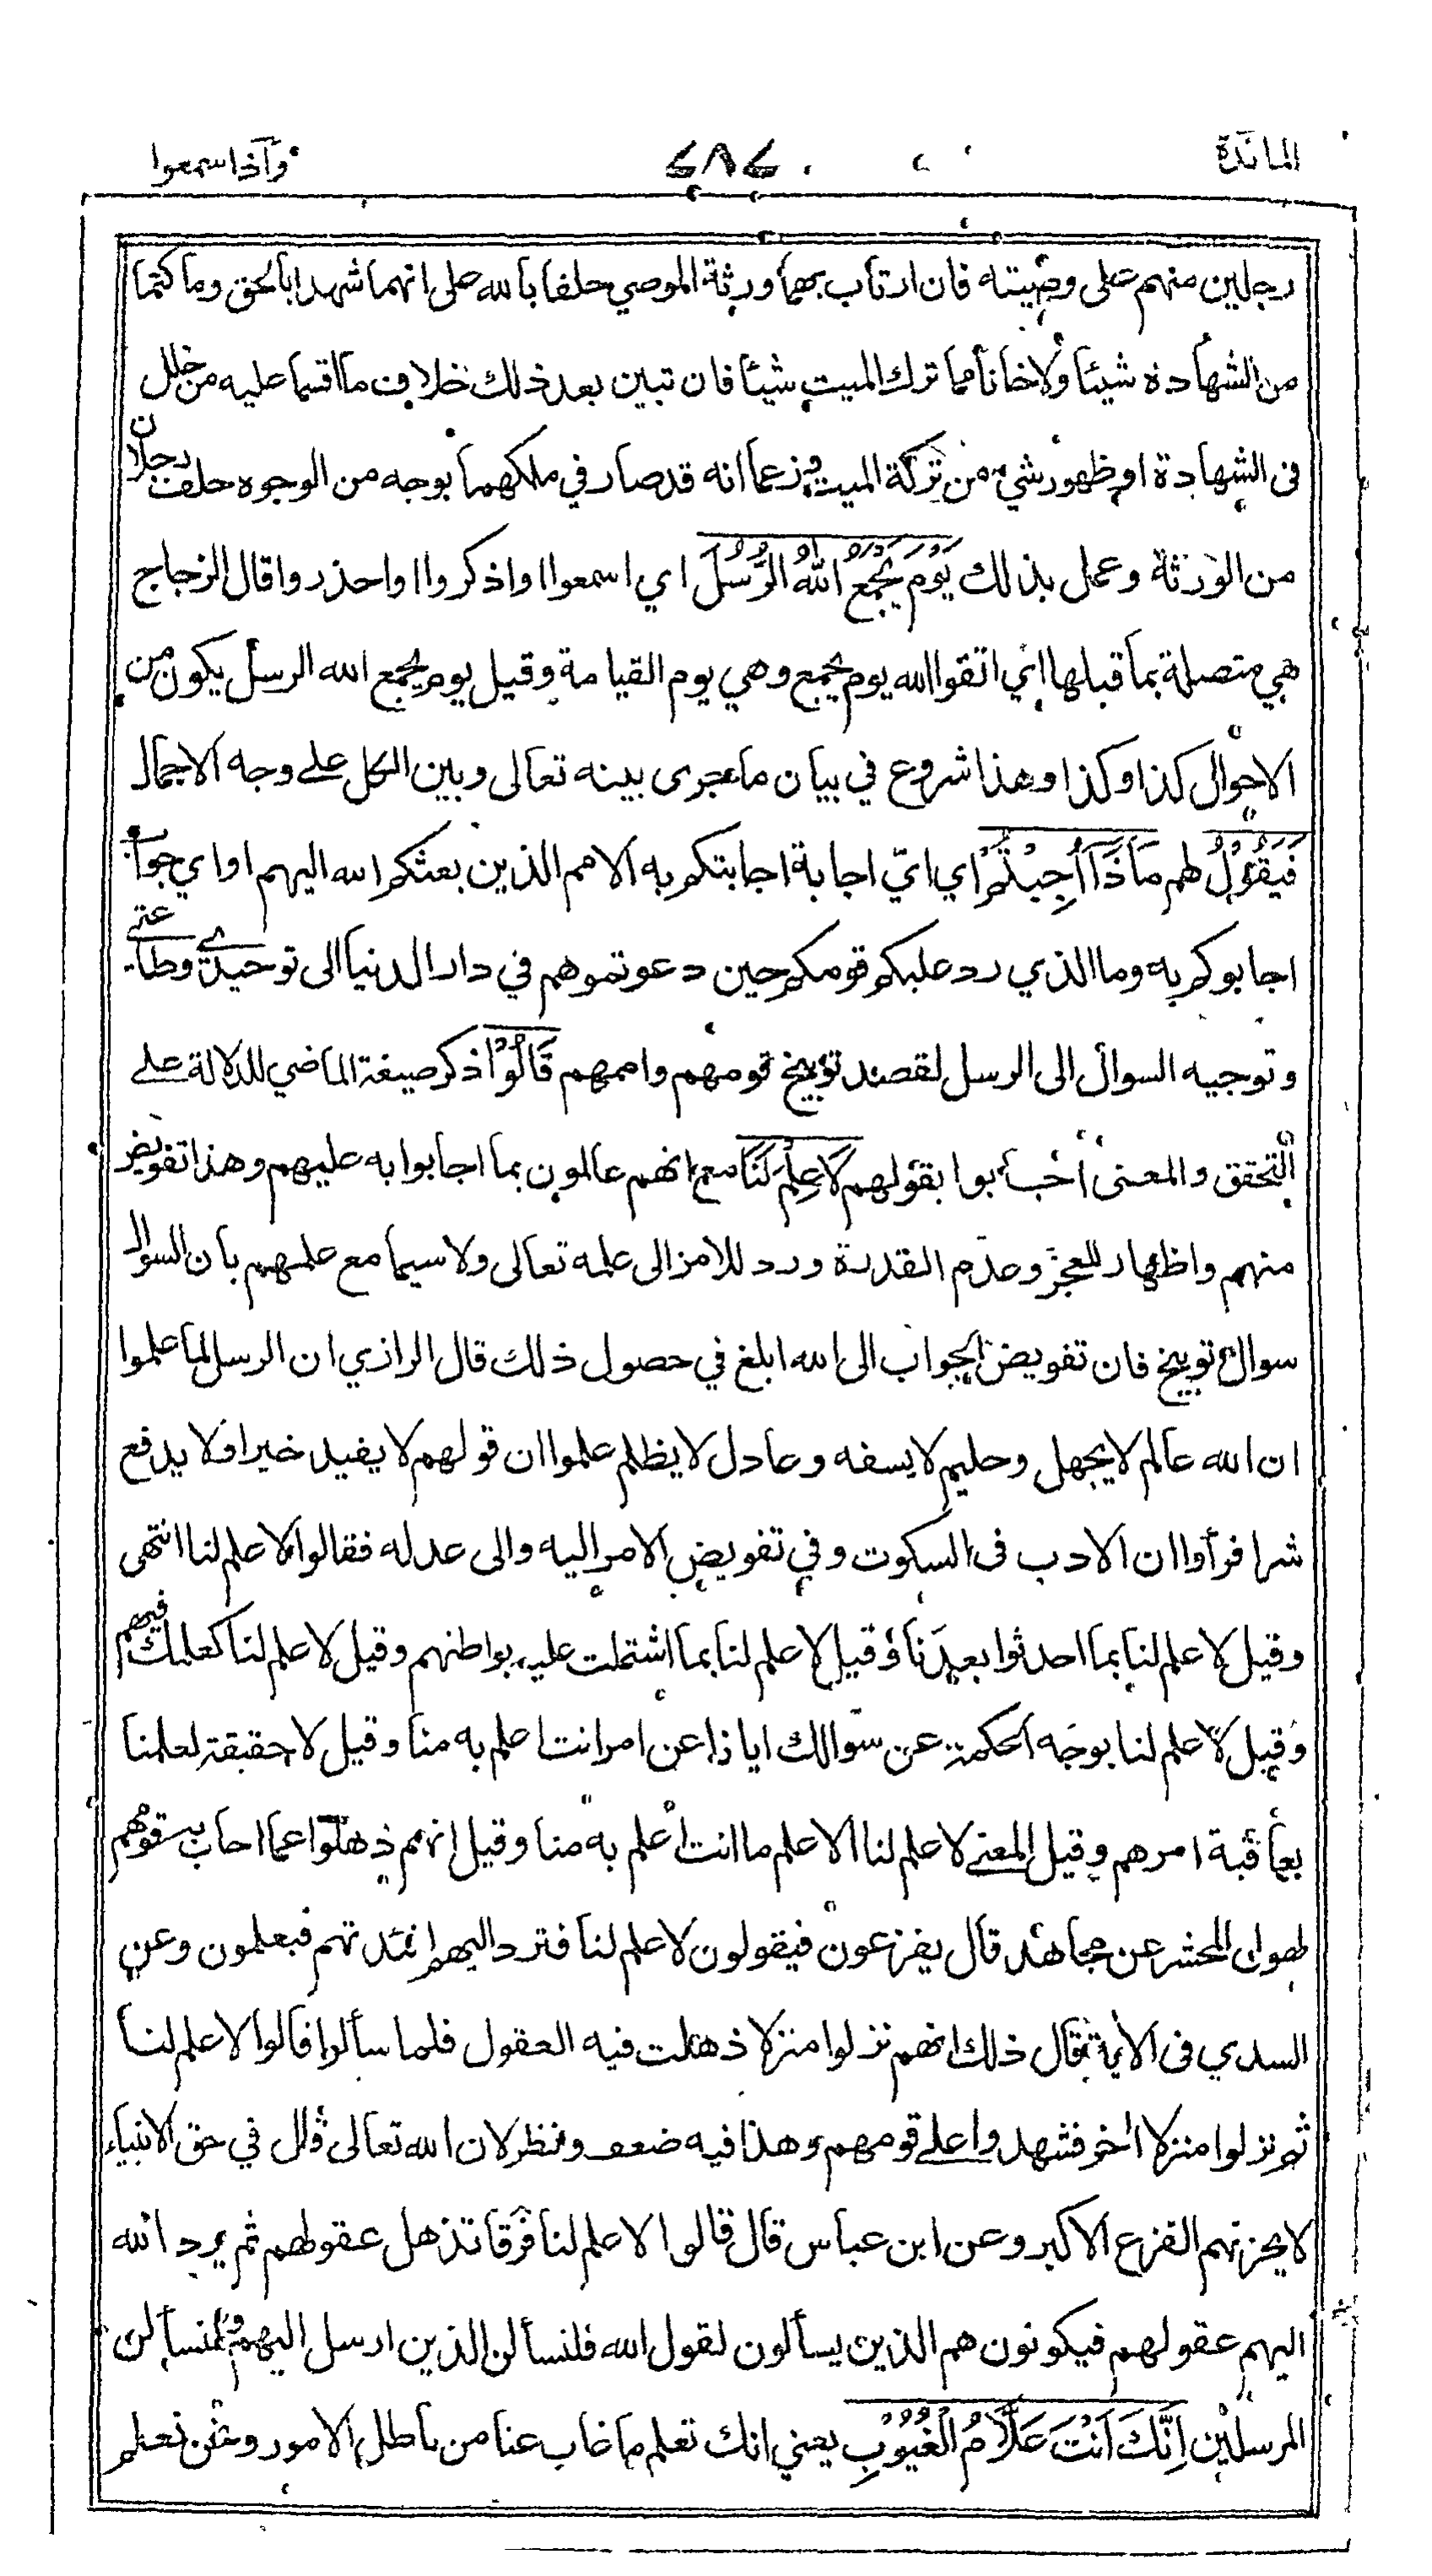 المائدة ٦٨٦ وإذا سمعوا
رجلين منهم على وصيته فان ارتاب بهما ورثة الموصي حلفا بالله على انهما شهدا بالحق وما كتما
من الشهادة شيئا ولا خانا مما ترك الميت شيئا فان تبين بعد ذلك خلاف ما اقسما عليه من خلل
فى الشهادة او ظهور شيء من تركة الميت وزعما انه قد صار في ملكهما بوجه من الوجوه حلف رجلان
من الورثة وعمل بذلك يَوْمَ يَجْمَعُ اللّٰهُ الرُّسُلَ اي اسمعوا واذكروا واحذروا قال الزجاج
هي متصلة بما قبلها اي اتقوا الله يوم يجمع وهي يوم القيامة وقيل يوم يجمع الله الرسل يكون من
الاحوال كذا وكذا وهذا شروع في بيان ما جرى بينه تعالى وبين الكل على وجه الاجمال
فَيَقُوْلُ لهم مَاذَا اُجِبْتُمْ اي ايّ اجابة اجابتكم به الامم الذين بعثكم الله اليهم او اي جواب
اجابوكم به وما الذي رد عليكم قومكم حين دعوتموهم في دار الدنيا الى توحيدي وطاعتي
وتوجيه السوال الى الرسل لقصد توبيخ قومهم واممهم قَالُوْا ذكر صيغة الماضي للدلالة على
التحقق والمعنى اجابوا بقولهم لَا عِلْمَ لَنَا مع انهم عالمون بما اجابوا به عليهم وهذا تفويض
منهم واظهار للعجز وعدم القدرة ورد للامر الى علمه تعالى ولا سيما مع علمهم بان السوال
سوال توبيخ فان تفويض الجواب الى الله ابلغ في حصول ذلك قال الرازي ان الرسل لما علموا
ان الله عالم لا يجهل وحليم لا يسفه وعادل لا يظلم علموا ان قولهم لا يفيد خيرا ولا يدفع
شرا فرأوا ان الادب فى السكوت وفي تفويض الامر اليه والى عدله فقالوا لا علم لنا انتهى
وقيل لا علم لنا بما احدثوا بعدنا وقيل لا علم لنا بما اشتملت عليه بواطنهم وقيل لا علم لنا كعلمك فيهم
وقيل لا علم لنا بوجه الحكمة عن سوالك ايانا عن امر انت اعلم به منا وقيل لا حقيقة لعلمنا
بعاقبة امرهم وقيل المعنى لا علم لنا الا علم ما انت اعلم به منا وقيل انهم ذهلوا عما اجاب به قومهم
لهول المحشر عن مجاهد قال يفزعون فيقولون لا علم لنا فترد اليهم افئدتهم فيعلمون وعن
السدي فى الآية قال ذلك انهم نزلوا منزلا ذهلت فيه العقول فلما سألوا قالوا لا علم لنا
ثم نزلوا منزلا اخر فشهدوا على قومهم وهذا فيه ضعف ونظر لان الله تعالى قال في حق الانبياء
لا يحزنهم الفزع الاكبر وعن ابن عباس قال قالوا لا علم لنا فرقا تذهل عقولهم ثم يرد الله
اليهم عقولهم فيكونون هم الذين يسألون لقول الله فلنسألن الذين ارسل اليهم ولنسألن
المرسلين اِنَّكَ اَنْتَ عَلَّامُ الْغُيُوْبِ يعني انك تعلم ما غاب عنا من باطل الامور ونحن نعلم